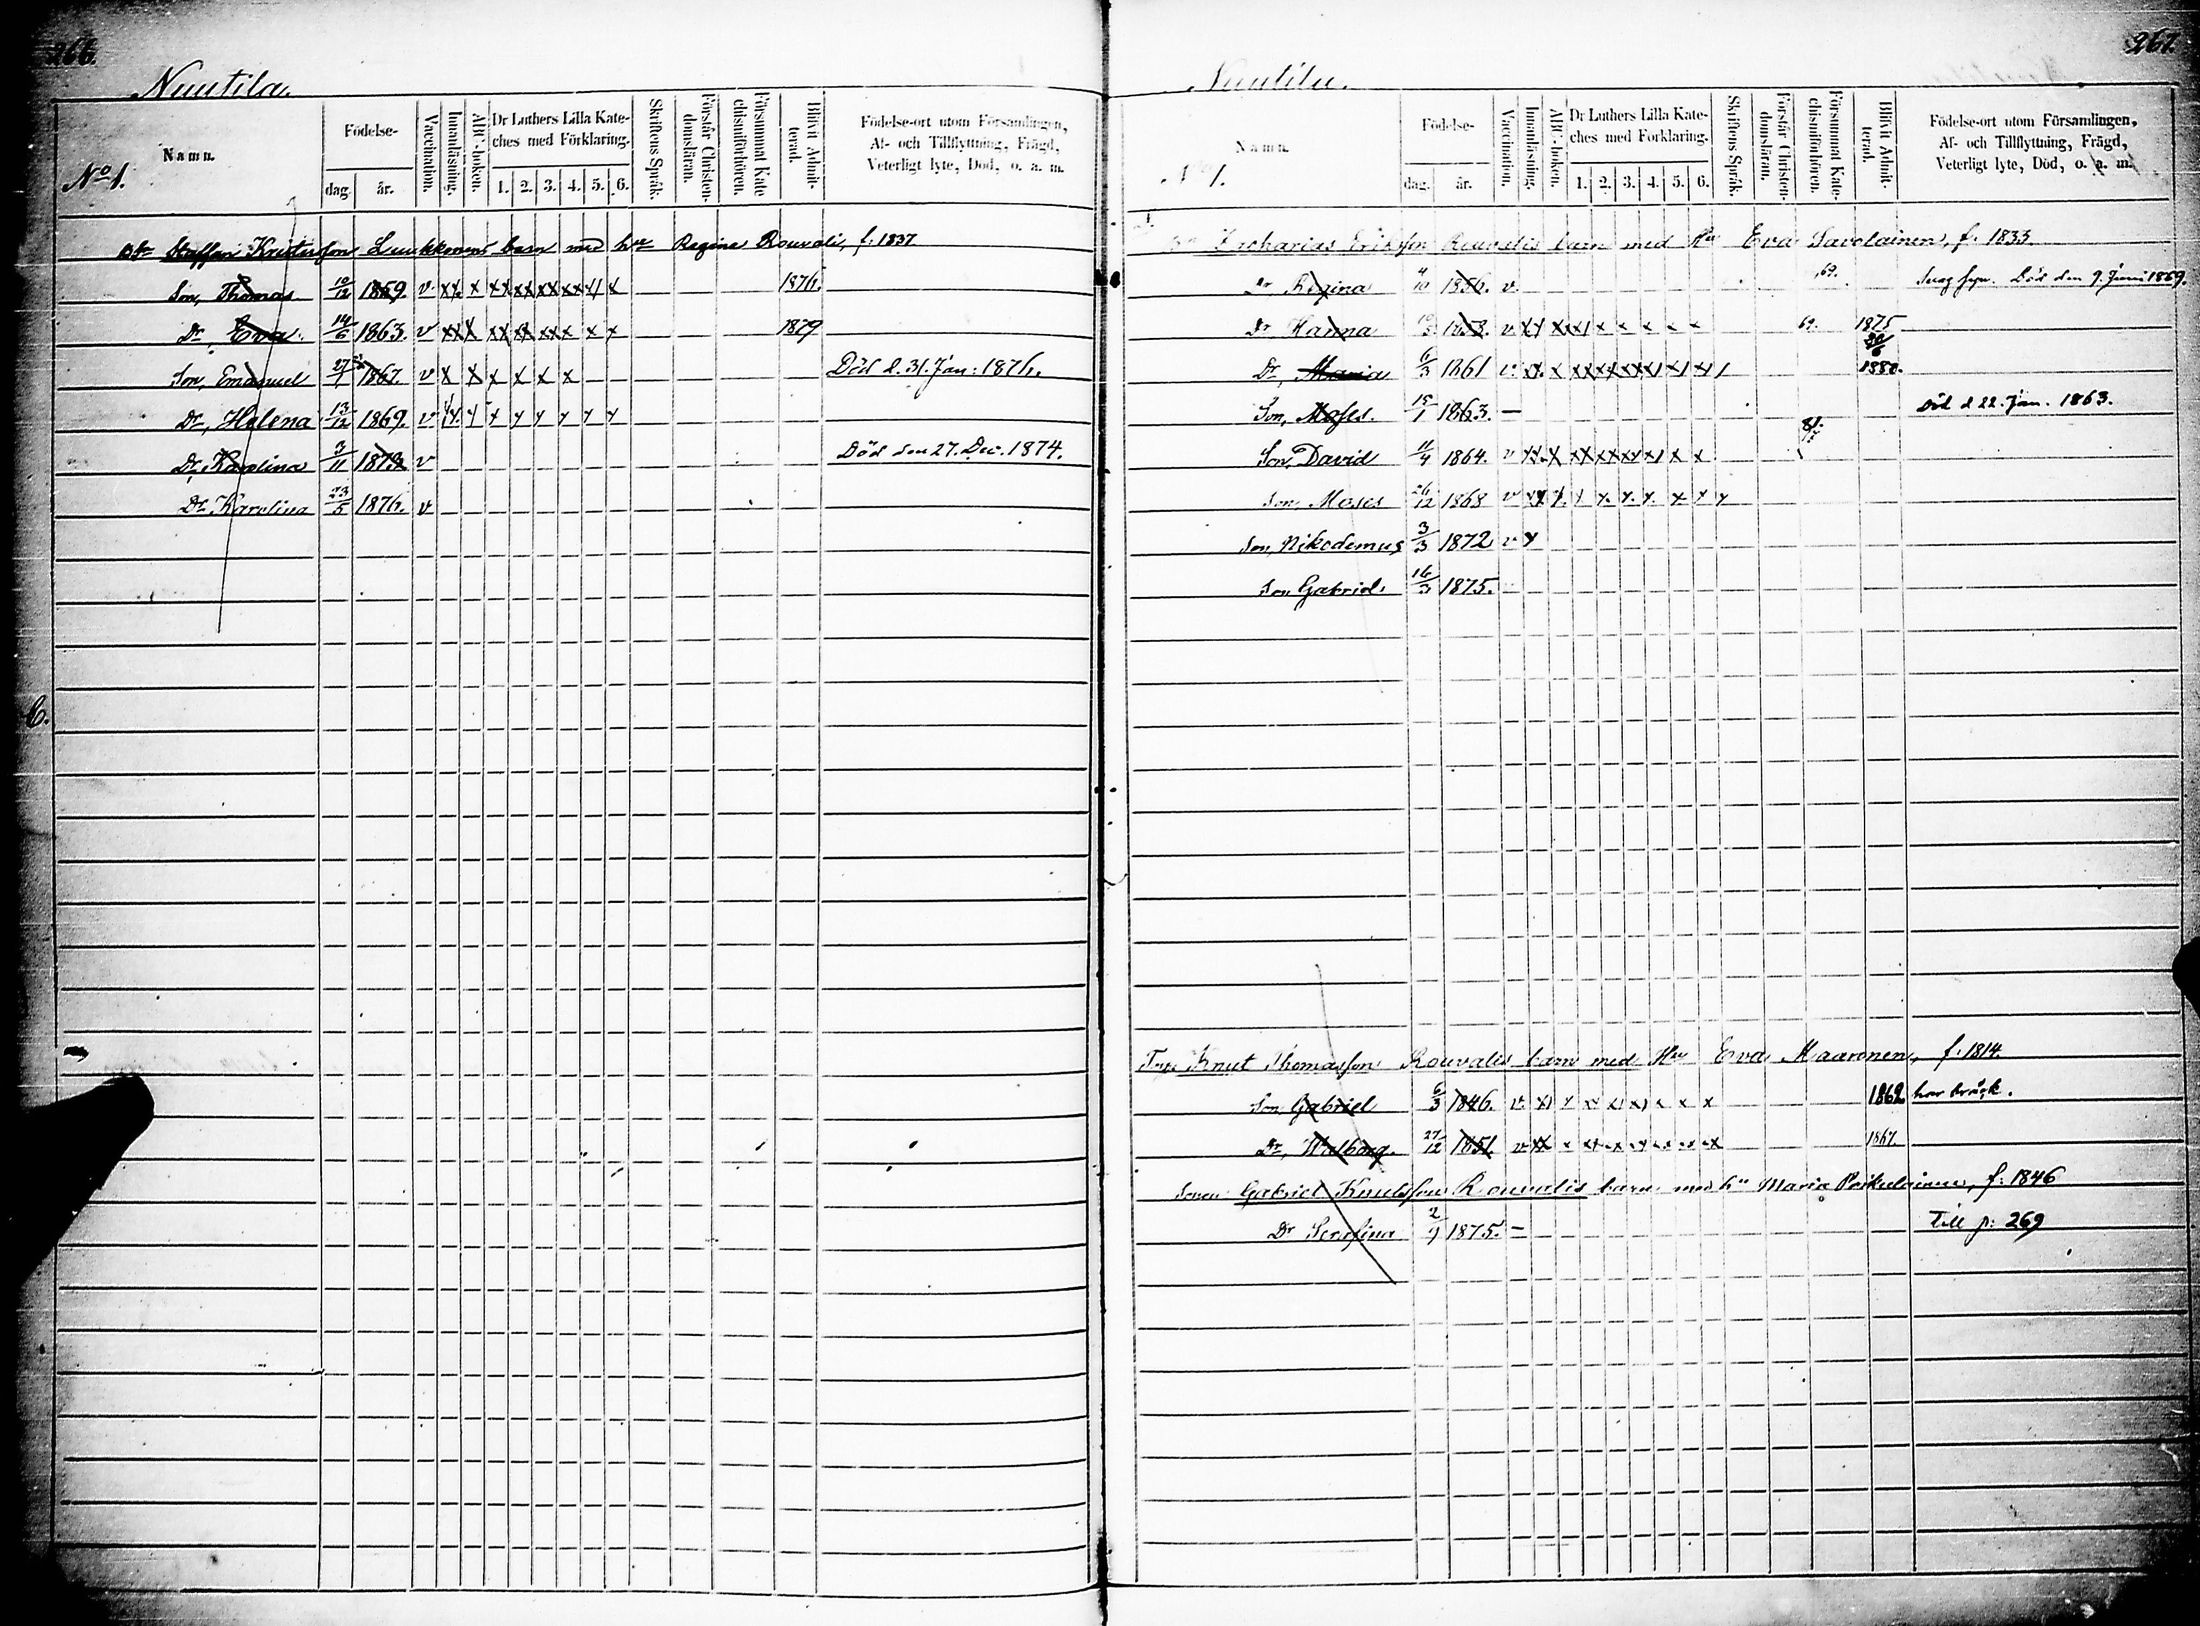 266.
Nuutila.
No 1.
Namn.
Födelse-
dag. år.
Vaccination.
Innanläsning.
ABC-boken.
Dr Luthers Lilla Kateches med Förklaring.
1. 2. 3. 4. 5. 6.
Skriftens Språk.
Förstår Christendomsläran.
Försummat Katechismiförhören.
Blifvit Admitterad.
Födelse-ort utom Församlingen,
Af- och Tillflyttning, Frägd,
Veterligt lyte, Död, o. s. m.
Staffan Luukkonens barn med hu Regina Rouvali, f. 1837
Son, Thomas 10/12 1859. v 1876.
Dr, Eva 14/6 1863. v 1879
Son, Emanuel 27/1 1867. v Död d. 31. Jan: 1876.
Dr, Helena 13/12 1869. v
Dr, Karolina 3/11 1873 v Död den 27. Dec. 1874.
Dr Karolina 23/5 1876. v
C.
267.
Nuutila.
No 1.
Namn.
Födelse-
dag. år.
Vaccination.
Innanläsning.
ABC-boken.
Dr Luthers Lilla Kateches med Förklaring.
1. 2. 3. 4. 5. 6.
Skriftens Språk.
Förstår Christendomsläran.
Försummat Katechismiförhören.
Blifvit Admitterad.
Födelse-ort utom Församlingen,
Af- och Tillflyttning, Frägd,
Veterligt lyte, Död, o. s. m.
Zacharias Eriksson Rouvalis barn med Hu Eva Savolainen, f. 1833.
Dr Regina 4/10 1856. v. 69. Död den 9. Juni 1869.
Dr Hanna 1858. v. 69. 1875
Dr, Maria 6/3 1861 v. 20/6 1880.
Son, Moses. 15/1 1863. — Död d 22. Jan. 1863.
Son, David 11/4 1864. v
Son, Moses 26/12 1868 v
Son, Nikodemus 3/3 1872 v
Son Gabriel 16/3 1875.
Knut Thomasson Rouvalis barn med Hu Eva Maaronen, f. 1814.
Son, Gabriel 6/3 1846. v. 1862 har bråck.
Dr, Walborg. 27/12 1851. v 1867.
Sonen Gabriel Knutsson Rouvalis barn med hu Maria Poikelainen, f. 1846
Dr Serafina 2/9 1875. — Till p: 269